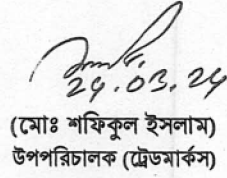 24.03.24
(মোঃ শফিকুল ইসলাম)
উপপরিচালক (ট্রেডমার্কস)